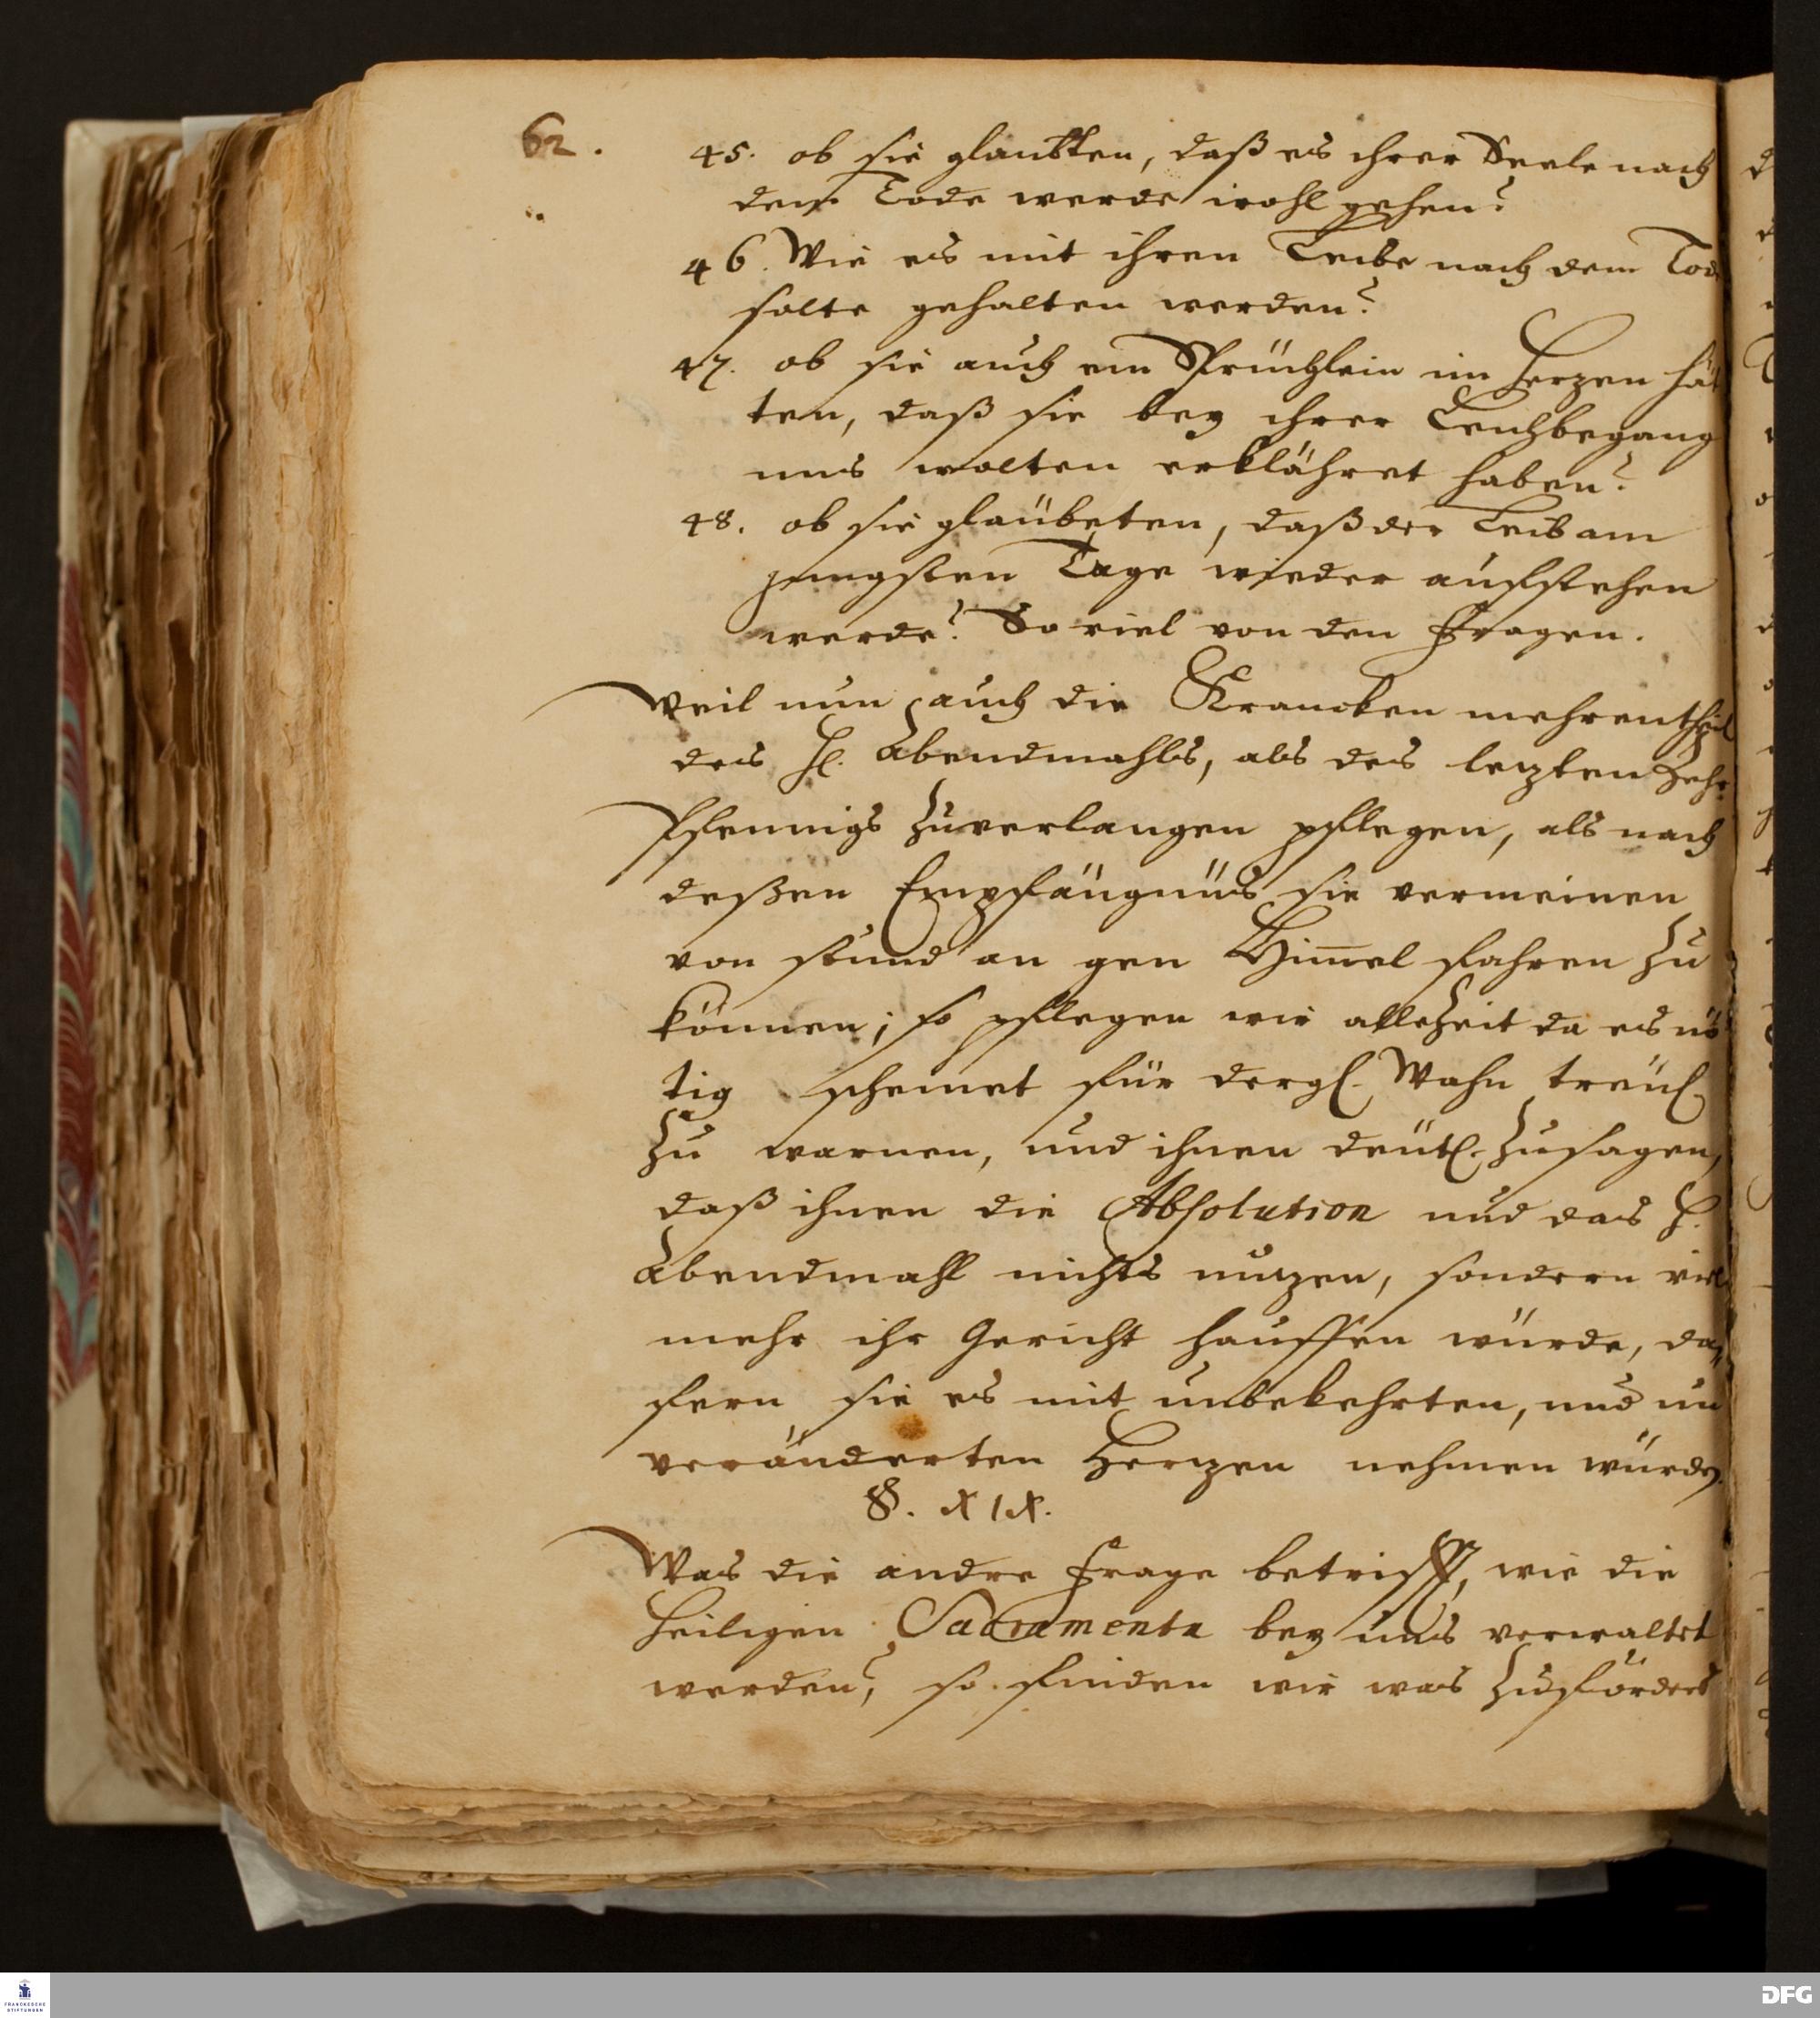 62.
45. ob sie glaubten, daß es ihrer Seele nach
dem Tode werde wohl gehen?
46. Wie es mit ihren Leibe nach dem Tode
solte gehalten werden?
47. ob sie auch ein Sprüchlein im Herzen hät
ten, daß sie bey ihrer Leichbegäng
nis wolten erklähret haben?
48. ob sie glaübeten, daß der Leib am
jüngsten Tage wieder aufstehen
werde? So viel von den Fragen.
Weil nun auch die Krancken mehrentheil
des Hl. Abendmahls, als des lezten Zehr
Pfennigs zuverlangen pflegen, als nach
deßen Empfängnüs sie vermeinen
von stund an gen Him̅el fahren zu
können; so pflegen wir allezeit da es nö
tig scheinet für dergl. Wahn treül.
zu warnen, und ihnen deütl. zusagen,
daß ihnen die Absolution und das H.
Abendmahl nichts nuzen, sondern viel
mehr ihr Gericht hauffen würde, da
fern sie es mit unbekehrten, und un
veränderten Herzen nehmen würden.
§. XIX.
Was die andre Frage betrifft, wie die
heiligen Sacramenta bey uns verwaltet
werden, so finden wir was zuförderst
FRANCKESCHE
STIFTUNGEN
DFG